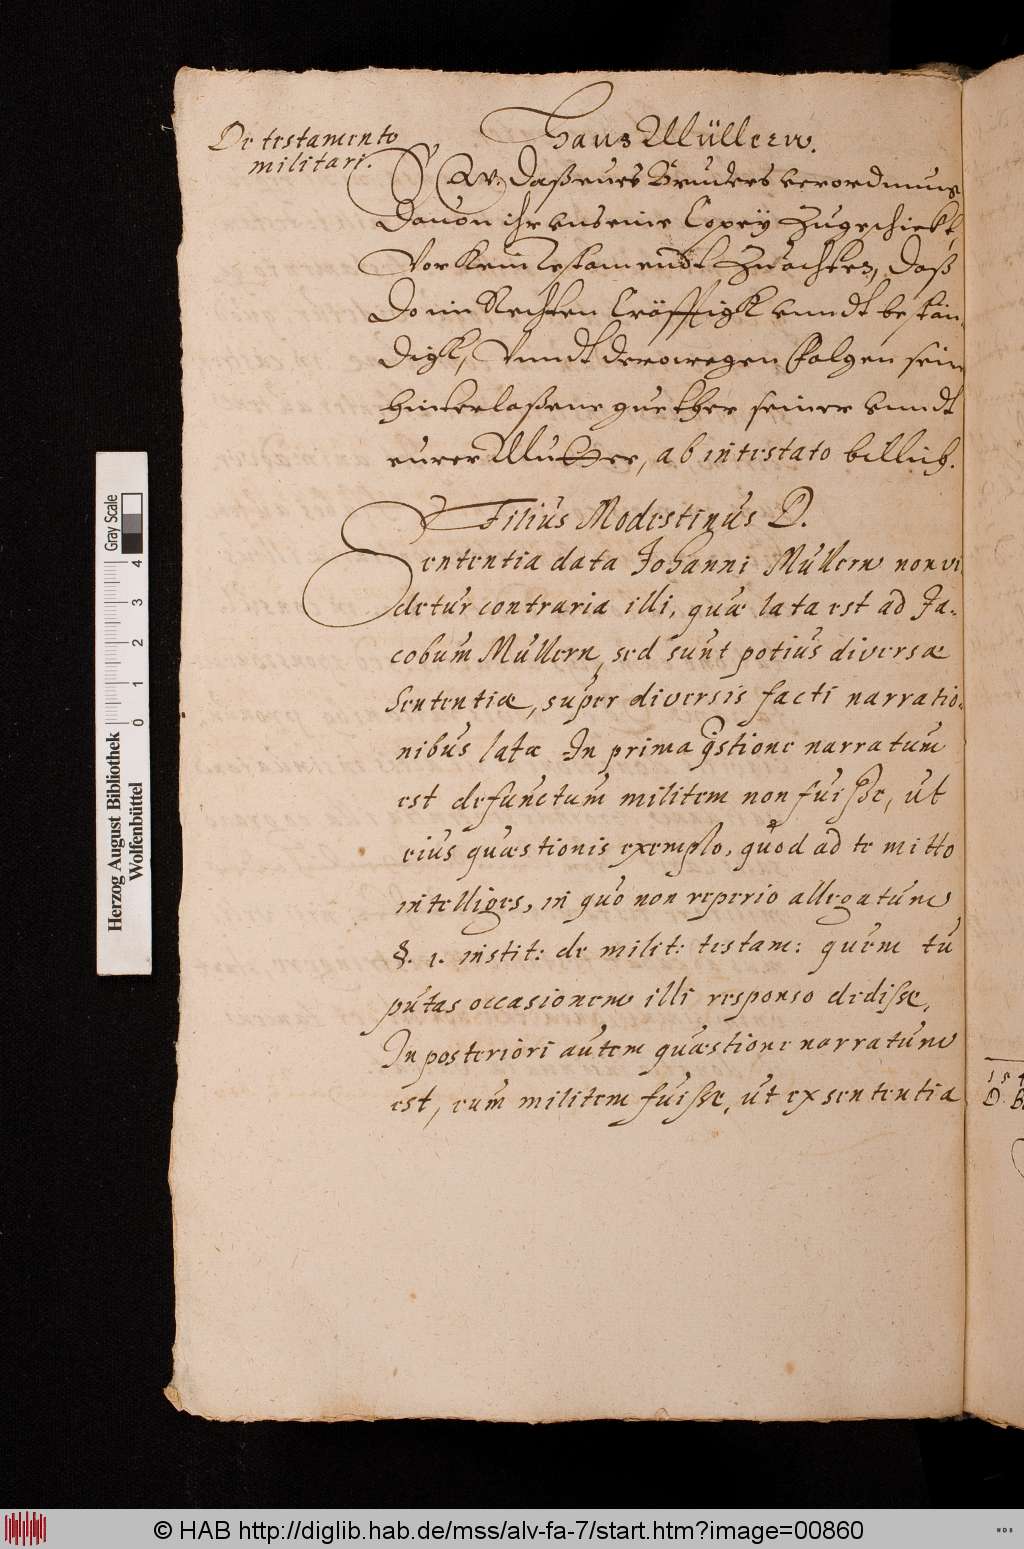 De testamento
militari.
Hans Müllern.
Daß eurs Bruders verordnung
Dauon ihr vns eine Copey zugeschickt,
Vor kein Testamendt zu achten, daß
Do im Rechten Cräfftigk vnndt bestän-
digk, Vnndt derowegen folgen sein
hinterlaßene guether seiner vnndt
eurer Mutter, ab intestato billich.
Filius Modestinus D.
Sententia data Johanni Mullern non vi
detur contraria illi, quæ lata est ad Ja-
cobum Mullern, sed sunt potius diversæ
Sententiæ, super diversis facti narratio-
nibus latæ In prima qstione narratum
est defunctum militem non fuisse, ut
eius quæstionis exemplo, quod ad te mitto
intelliges, in quo non reperio allegatum
§. 1. instit: de milit: testam: quem tu
putas occasionem illi responso dedisse,
In posteriori autem quæstione narratum
est, eum militem fuisse, ut ex sententia
154
D. B
Herzog August Bibliothek
Wolfenbüttel
0 1 2 3 4
Gray Scale
© HAB http://diglib.hab.de/mss/alv-fa-7/start.htm?image=00860